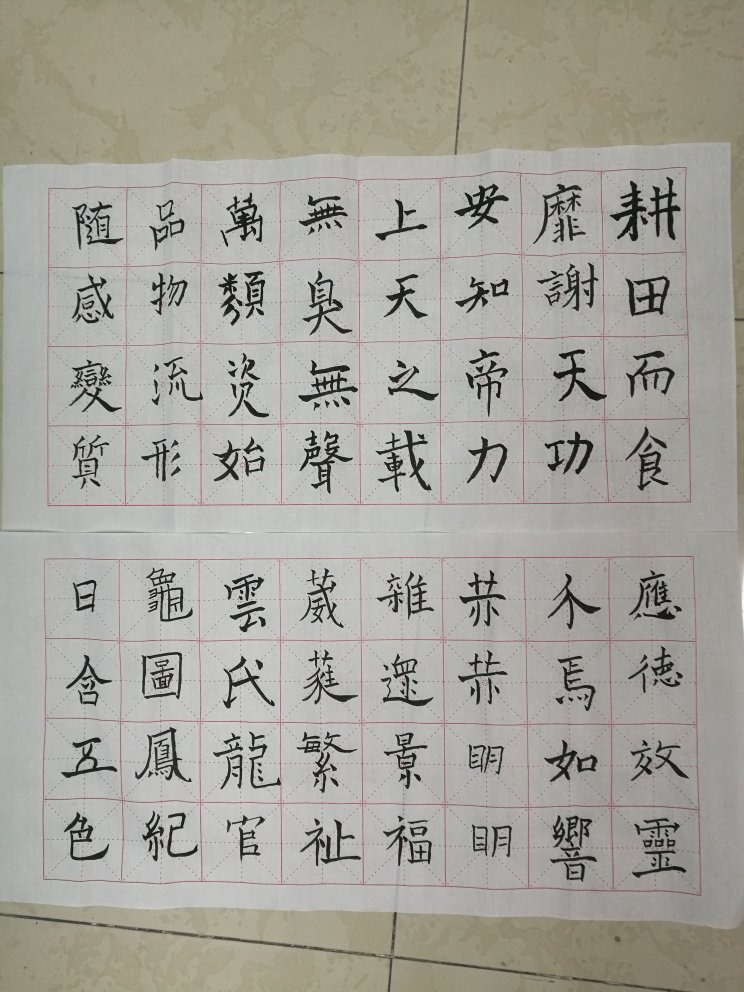 耕田而食
靡謝天功
安知帝力
上天之載
無臭無聲
萬類资始
品物流形
随感變質
應徳效靈
介焉如響
赫赫眀眀
雜遝景福
葳蕤繁祉
雲氏龍官
龜圖鳳紀
日含五色